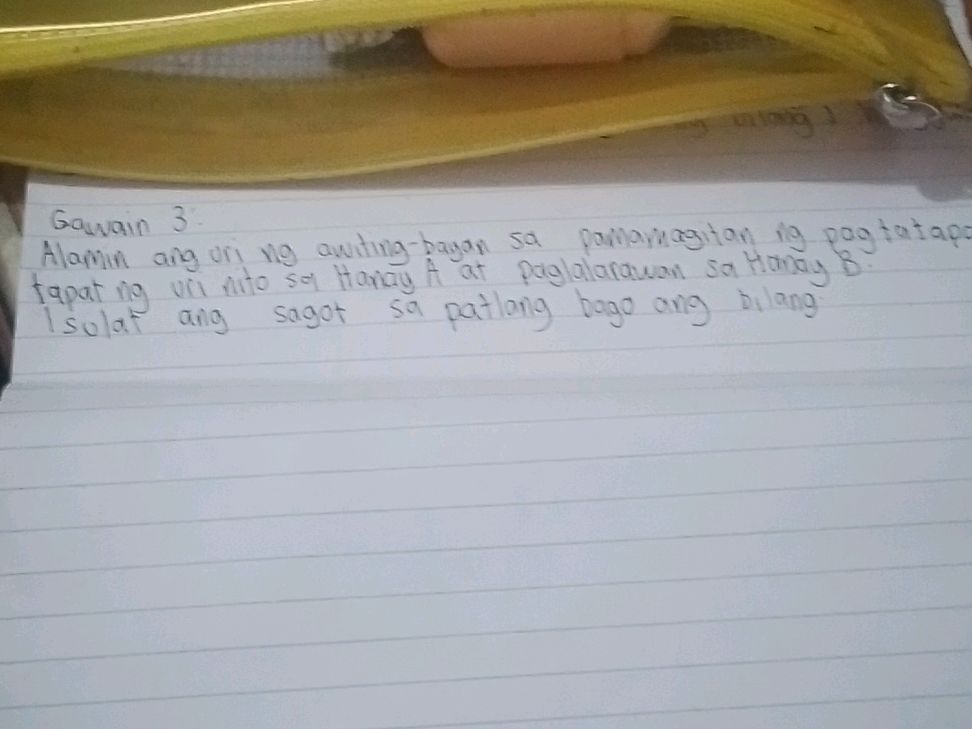 bilang
Gawain 3:
Alamin ang uri ng awiting-bayan sa pamamagitan ng pagtatapa
tapat ng uri nito sa Hanay A at paglalarawan sa Hanay B.
Isulat ang sagot sa patlang bago ang bilang